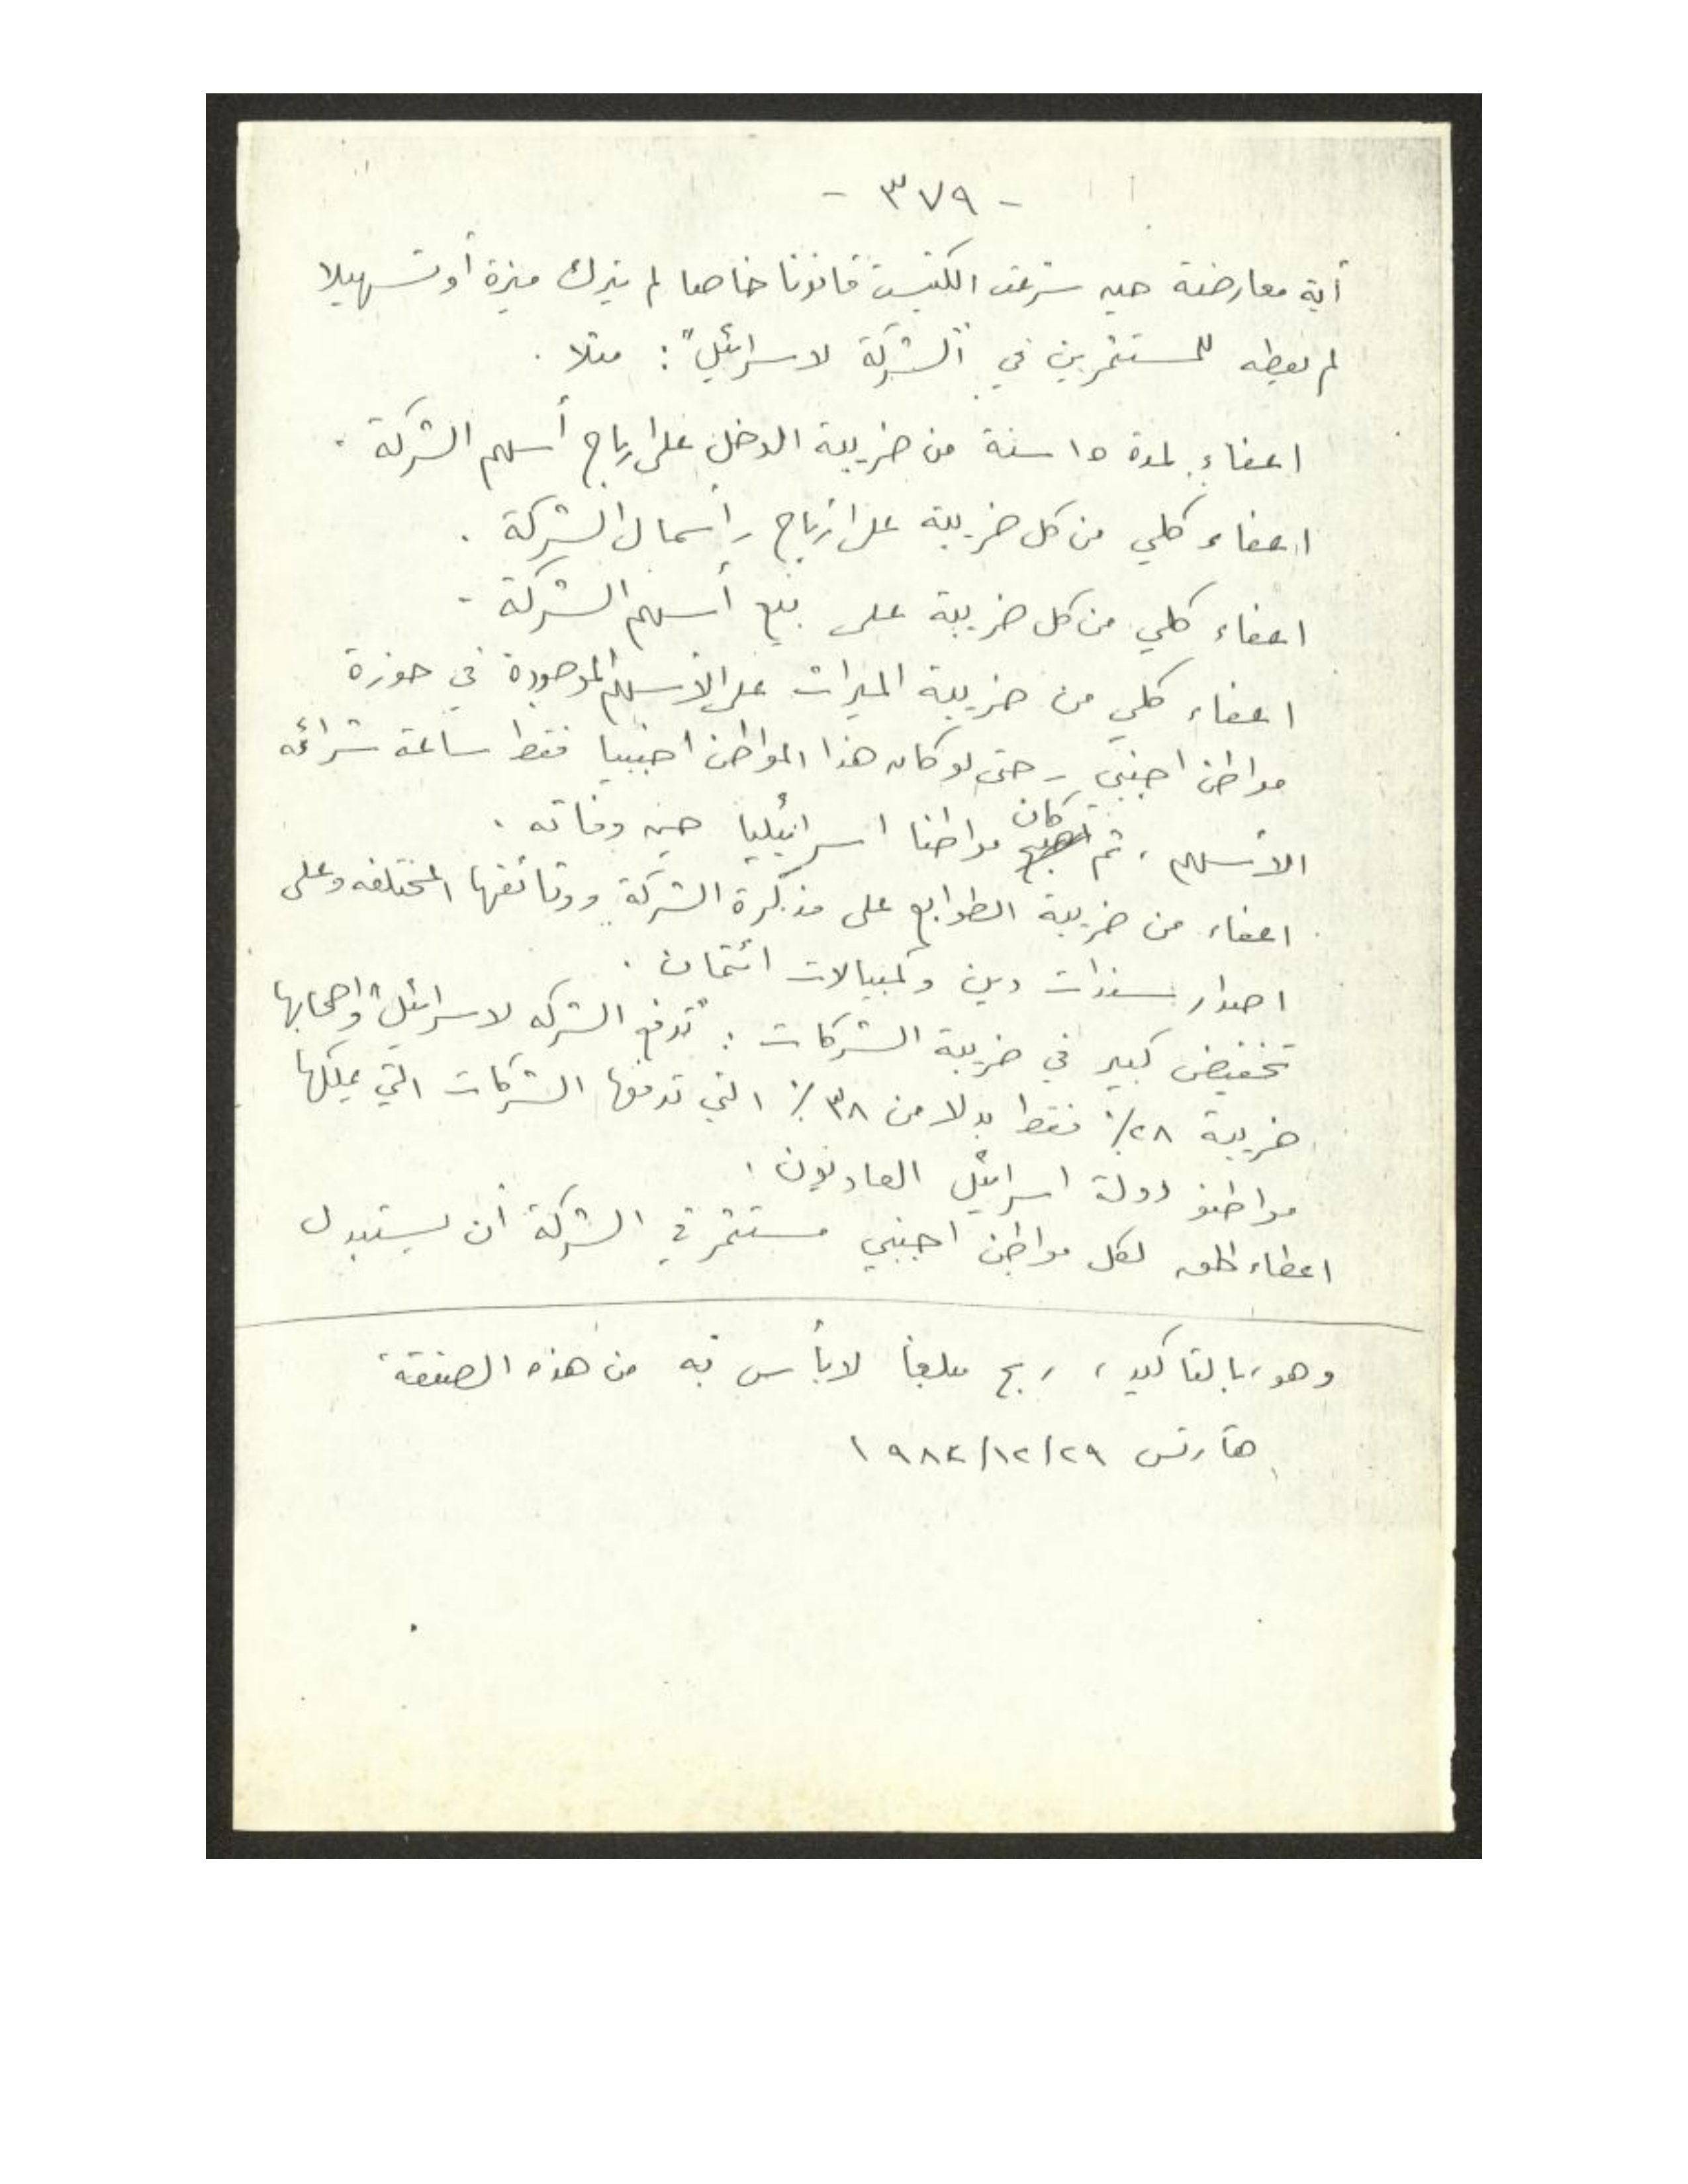 - ٣٧٩ -
أية معارضة حين شرعت الكنيست قانونا خاصا لم يترك ميزة أو تسهيلا
لم يعطه للمستثمرين في "الشركة لاسرائيل": مثلا .
اعفاء لمدة ١٥ سنة من ضريبة الدخل على ارباح أسهم الشركة .
اعفاء كلي من كل ضريبة على ارباح رأسمال الشركة .
اعفاء كلي من كل ضريبة على بيع أسهم الشركة .
اعفاء كلي من ضريبة الميراث على الأسهم الموجودة في حوزة
مواطن اجنبي - حتى لو كان هذا المواطن اجنبيا فقط ساعة شرائه
الأسهم ، ثم كان مواطنا اسرائيليا حين وفاته .
اعفاء من ضريبة الطوابع على مذكرة الشركة ووثائقها المختلفه وعلى
اصدار سندات دين وكمبيالات ائتمان .
تخفيض كبير في ضريبة الشركات : تدفع "الشركه لاسرائيل" واصحابها
ضريبة ٢٨٪ فقط بدلا من ٣٨٪ التي تدفعها الشركات التي يملكها
مواطنو دولة اسرائيل العاديون .
اعطاء الحق لكل مواطن اجنبي مستثمر في الشركة أن يستبدل
وهو، بالتاكيد ، ربح مبلغا لابأس به من هذه الصفقة
هآرتس ١٩٨٤/١٢/٢٩